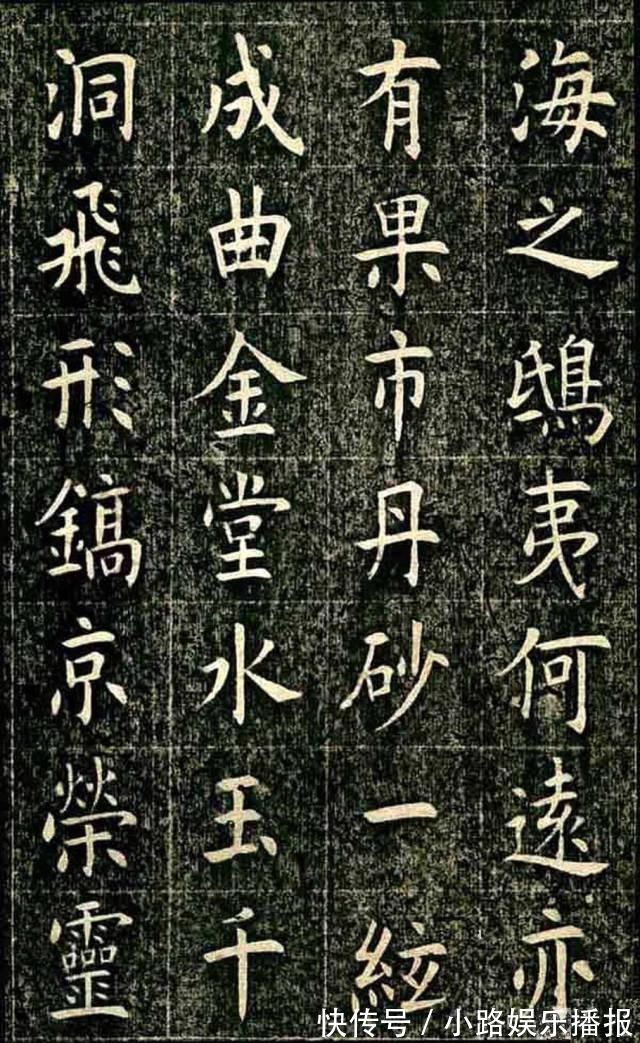 海之鴟夷何遠亦
有果市丹砂一絃
成曲金堂水玉千
洞飛形鎬京榮靈
快传号／小路娱乐播报